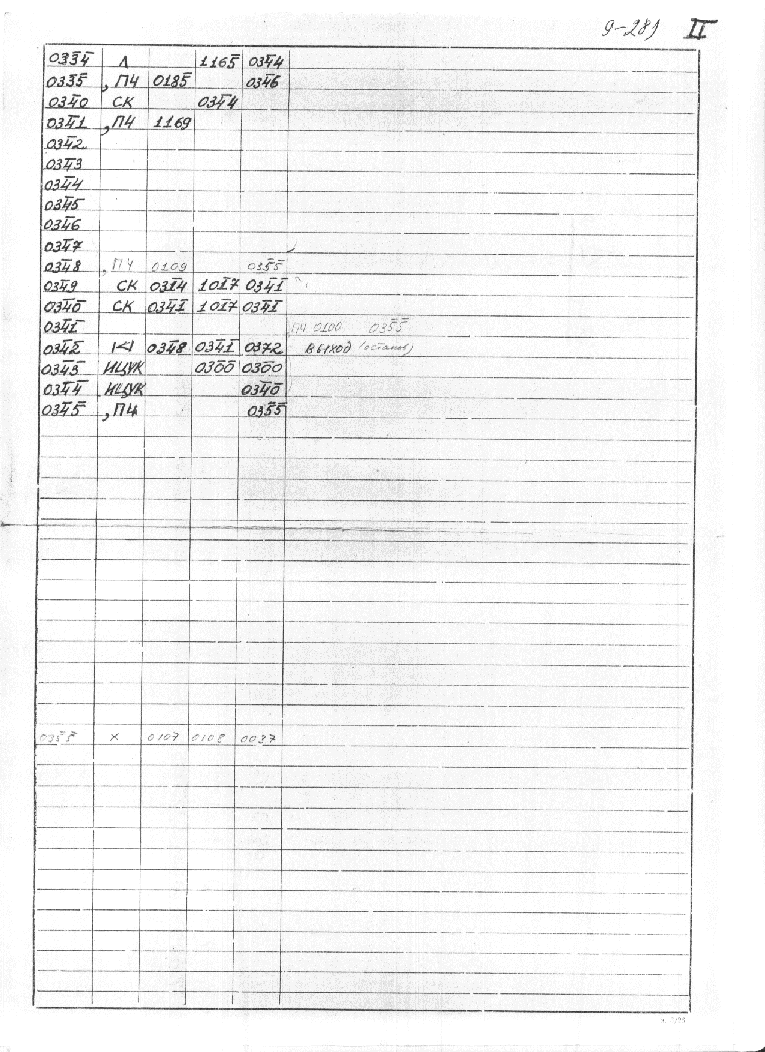 9-281 II
03̅3̅4̅ Л 1165̅ 034̅4
03̅3̅5̅ , ПЧ 0185̅ 034̅6
034̅0 СК 034̅4
034̅1 , ПЧ 1169
034̅2
034̅3
034̅4
034̅5
034̅6
034̅7
034̅8 , ПЧ 0109 035̅5̅
034̅9 СК 031̅4 101̅7 034̅1̅
034̅0̅ СК 034̅1̅ 101̅7 034̅1̅
034̅1̅ ПЧ 0100 035̅5̅
034̅2̅ 034̅8 034̅1̅ 0372 ВЫХОД (останов)
034̅3̅ ИЦУК 030̅0̅ 030̅0
034̅4̅ ИЦУК 034̅0̅
034̅5̅ , ПЧ 035̅5̅
035̅5̅ × 0107 0108 0037